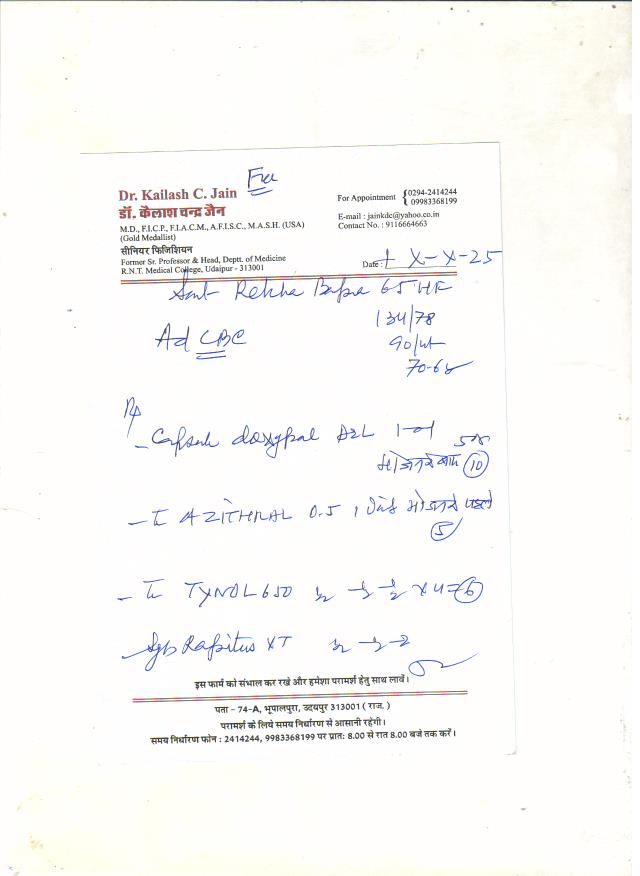 Free
Dr. Kailash C. Jain
डॉ. कैलाश चन्द्र जैन
M.D., F.I.C.P., F.I.A.C.M., A.F.I.S.C., M.A.S.H. (USA)
(Gold Medallist)
सीनियर फिजिशियन
Former Sr. Professor & Head, Deptt. of Medicine
R.N.T. Medical College, Udaipur - 313001
For Appointment { 0294-2414244
09983368199
E-mail : jainkdc@yahoo.co.in
Contact No. : 9116664663
Date : X-X-25
Smt Rekha 65
134/78
Ad CBC
90/
70-
Rp
- Capsule doxypal D2L 1-1
भोजन के बाद 10
- T AZITHRAL 0.5 1 भोजन से पहले
5
- T TYNOL 650
Syp Rapitus XT
इस फार्म को संभाल कर रखे और हमेशा परामर्श हेतु साथ लावें।
पता - 74-A, भूपालपुरा, उदयपुर 313001 ( राज. )
परामर्श के लिये समय निर्धारण से आसानी रहेगी।
समय निर्धारण फोन : 2414244, 9983368199 पर प्रात: 8.00 से रात 8.00 बजे तक करें।